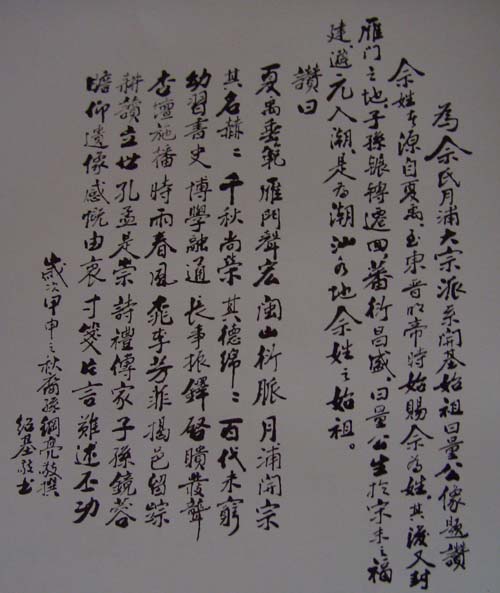 為余氏月浦大宗派系開基始祖曰量公像題讚
余姓本源自夏禹，至東晉明帝時始賜余為姓，其後又封
雁門之地，子孫輾轉遷四，蕃衍昌盛，曰量公生於宋末之福
建，避元入潮，是為潮汕各地余姓之始祖。
讚曰
夏禹垂範　雁門聲宏　閩山衍脈　月浦開宗
其名赫々　千秋尚榮　其德綿々　百代未窮
幼習書史　博學融通　長事振鐸　啓聵發聾
杏壇施播　時雨春風　桃李芳菲　揭邑留踪
耕讀立世　孔孟是崇　詩禮傳家　子孫鏡蓉
瞻仰遺像　感慨由衷　寸箋片言　難述丕功
歲次甲申之秋裔孫綱亮敬撰
紹基敬书